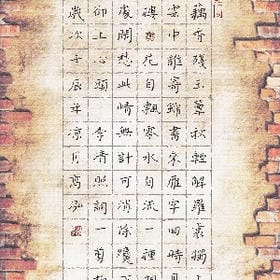 藕香殘玉簟秋輕解羅裳獨
雲中誰寄錦書來雁字回時
樓花自飄零水自流一種
處閒愁此情無計可消除纔
卻上心頭李清照詞一首
歲次壬辰年涼月